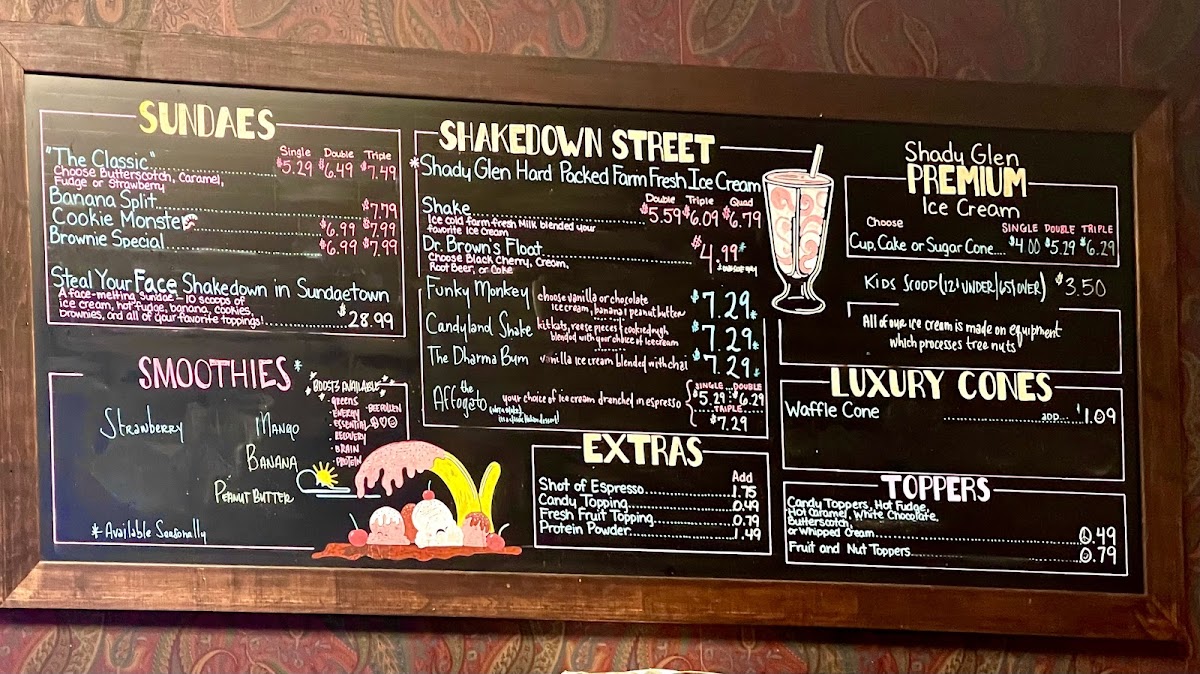 SUNDAES
Single Double Triple
"The Classic" $5.29 $6.49 $7.49
Choose Butterscotch, Caramel,
Fudge or Strawberry
Banana Split $7.79
Cookie Monster $6.99 $7.99
Brownie Special $6.99 $7.99
Steal Your Face Shakedown in Sundaetown
A face-melting sundae - 10 scoops of
ice cream, hot fudge, banana, cookies,
brownies, and all of your favorite toppings! $28.99
SMOOTHIES*
BOOSTS AVAILABLE
Strawberry
Mango
Banana
Peanut Butter
GREENS
ENERGY
BEE POLLEN
ESSENTIAL
RECOVERY
BRAIN
PROTEIN
* Available Seasonally
SHAKEDOWN STREET
*Shady Glen Hard Packed Farm Fresh Ice Cream
Double Triple Quad
Shake $5.59 $6.09 $6.79
Ice cold farm fresh Milk blended your
favorite ice cream
Dr. Brown's Float $4.99*
Choose Black Cherry, Cream,
Root Beer, or Coke
Funky Monkey choose vanilla or chocolate
ice cream, banana & peanut butter $7.29*
Candyland Shake kit kats, reese pieces & cookie dough
blended with your choice of ice cream $7.29*
The Dharma Bum vanilla ice cream blended with chai $7.29*
the
Affogato your choice of ice cream drenched in espresso
SINGLE DOUBLE
$5.29 $6.29
TRIPLE
$7.29
EXTRAS
Add
Shot of Espresso 1.75
Candy Topping 0.49
Fresh Fruit Topping 0.79
Protein Powder 1.49
Shady Glen
PREMIUM
Ice Cream
Choose SINGLE DOUBLE TRIPLE
Cup, Cake or Sugar Cone $4.00 $5.29 $6.29
Kids Scoop (12 & UNDER/65 & OVER) $3.50
All of our ice cream is made on equipment
which processes tree nuts
LUXURY CONES
Waffle Cone ADD 1.09
TOPPERS
Candy Toppers, Hot Fudge,
Hot Caramel, White Chocolate,
Butterscotch,
or Whipped Cream 0.49
Fruit and Nut Toppers 0.79